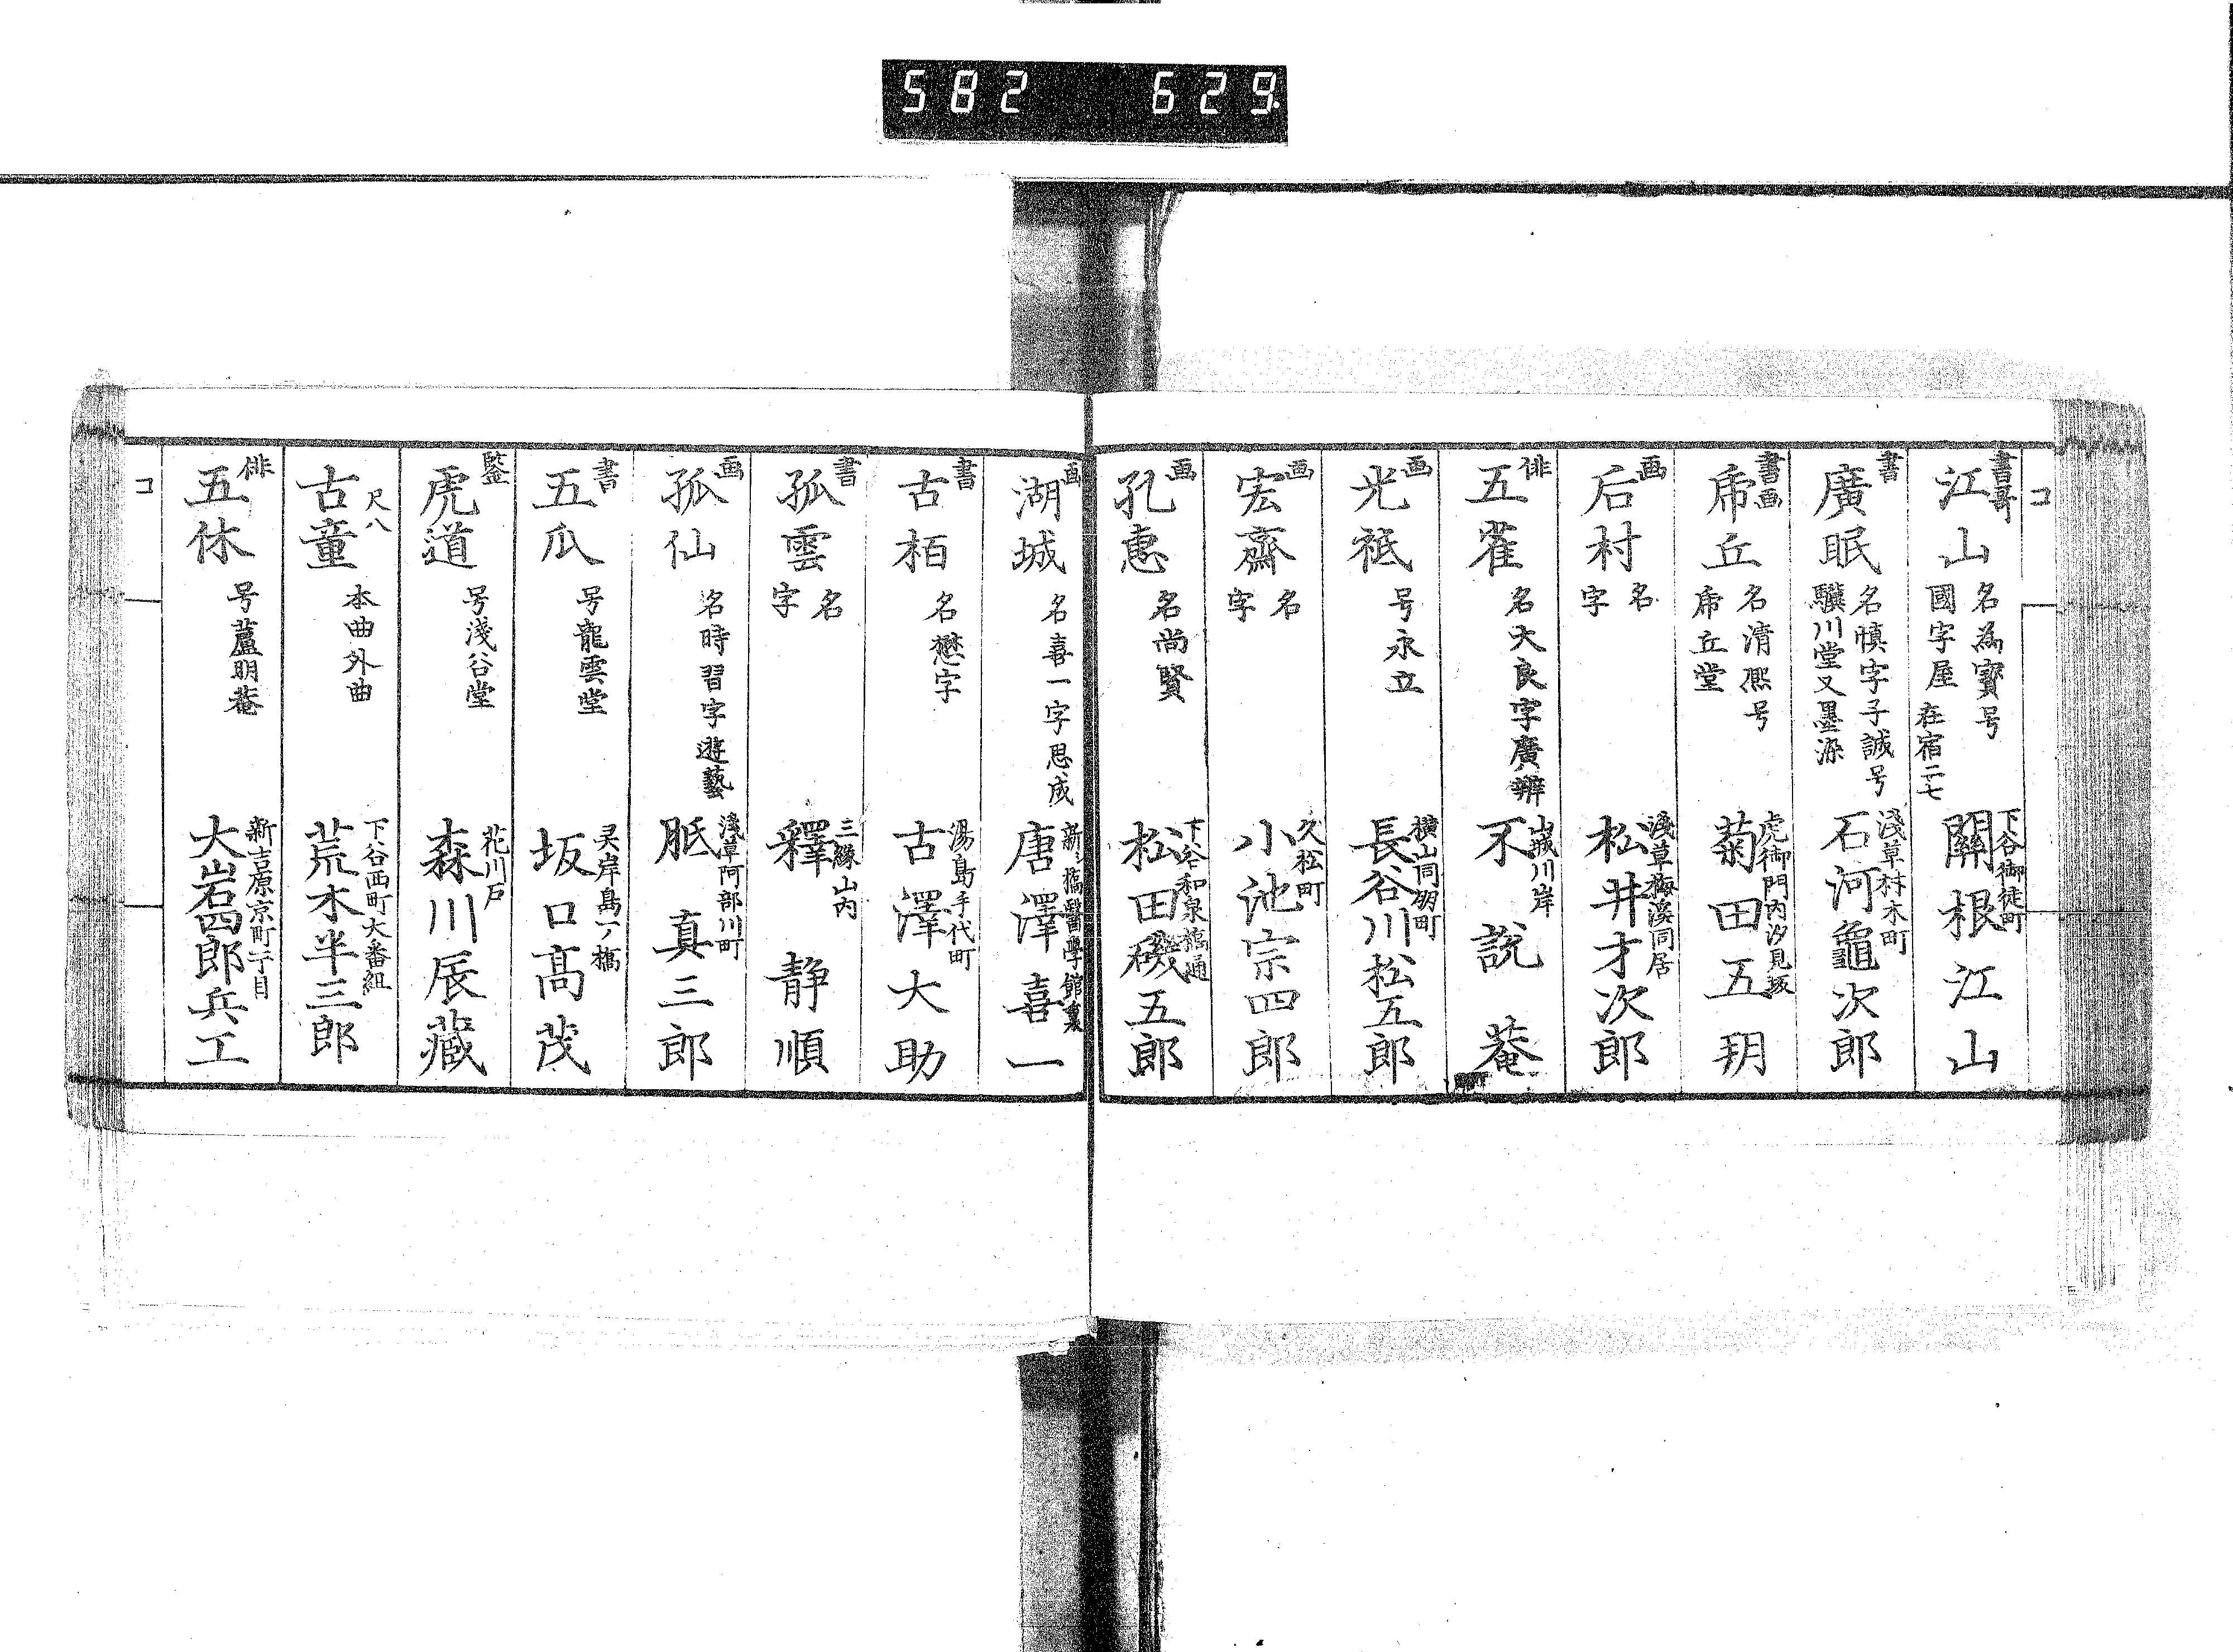 582 629.
コ
書哥 江山 名為寳号 國字屋 在宿二七 下谷御徒町 關根江山
書 廣眠 名慎字子誠号 驥川堂又墨染 浅草材木町 石河龜次郎
書画 帋丘 名清凞号 帋丘堂 虎御門内汐見坂 菊田五玥
画 后村 名 字 浅草梅溪同居 松井才次郎
俳 五雀 名大良字廣辨 山城川岸 不説菴
画 光祗 号永立 横山同朋町 長谷川松五郎
画 宏齋 名 字 久松町 小池宗四郎
画 孔惠 名尚賢 下谷和泉橋通 松田磯五郎
画 湖城 名喜一字思成 新シ橋醫學館裏 唐澤喜一
書 古栢 名懋字 湯島手代町 古澤大助
書 孤雲 名 字 三縁山内 釋静順
画 孤仙 名時習字遊藝 浅草阿部川町 胝真三郎
書 五瓜 号龍雲堂 灵岸島一ノ橋 坂口髙茂
鑒 虎道 号淺谷堂 花川戸 森川辰藏
尺八 古童 本曲外曲 下谷西町大番組 荒木半三郎
俳 五休 号蘆明菴 新吉原京町二丁目 大岩四郎兵工
コ